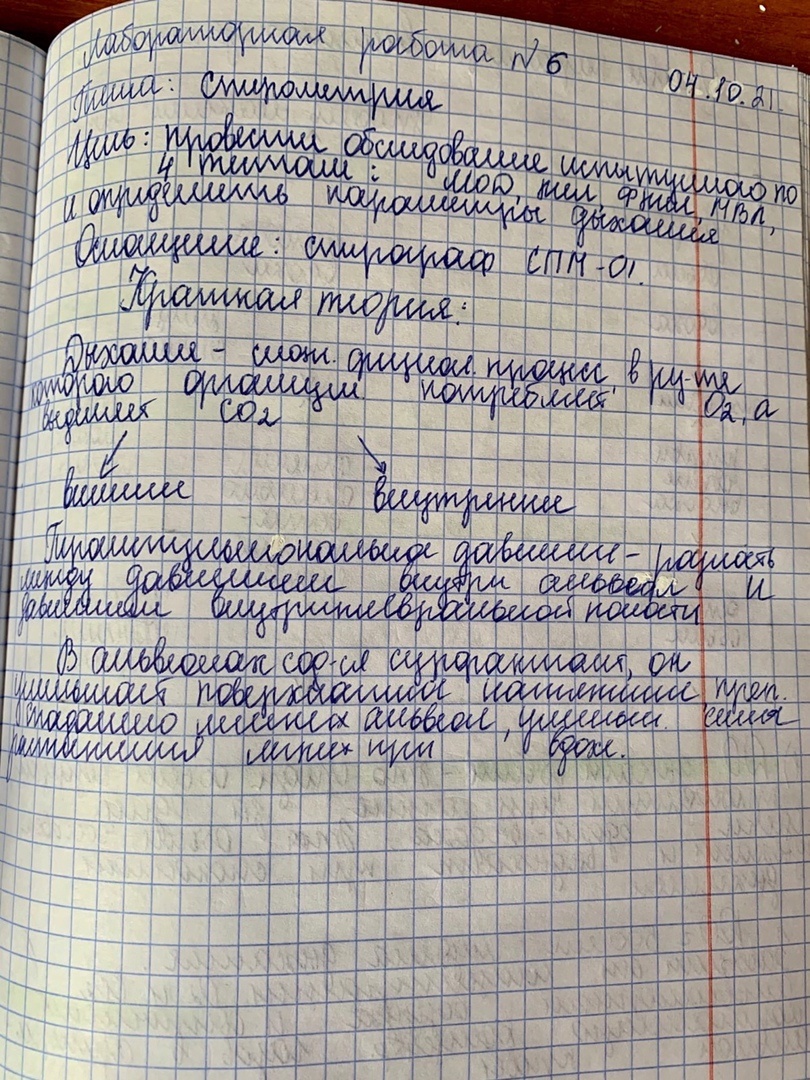 Лабораторная работа №6
04.10.21.
Тема: Спирометрия
Цель: провести обследование испытуемого по
4 тестам: МОД, жел, фжел, МВЛ,
и определить параметры дыхания
Оснащение: спирограф СПМ-01.
Краткая теория:
Дыхание - слож. физиол. процесс, в рез-те
которого организм потребляет O2, а
выделяет CO2
внешнее внутреннее
Транспульмональное давление - разность
между давлением внутри альвеол и
давлением внутриплевральной полости
В альвеолах сод-ся сурфактант, он
уменьшает поверхностное натяжение, преп.
спаданию легких альвеол, уменьш. силы
растяжения легких при вдохе.